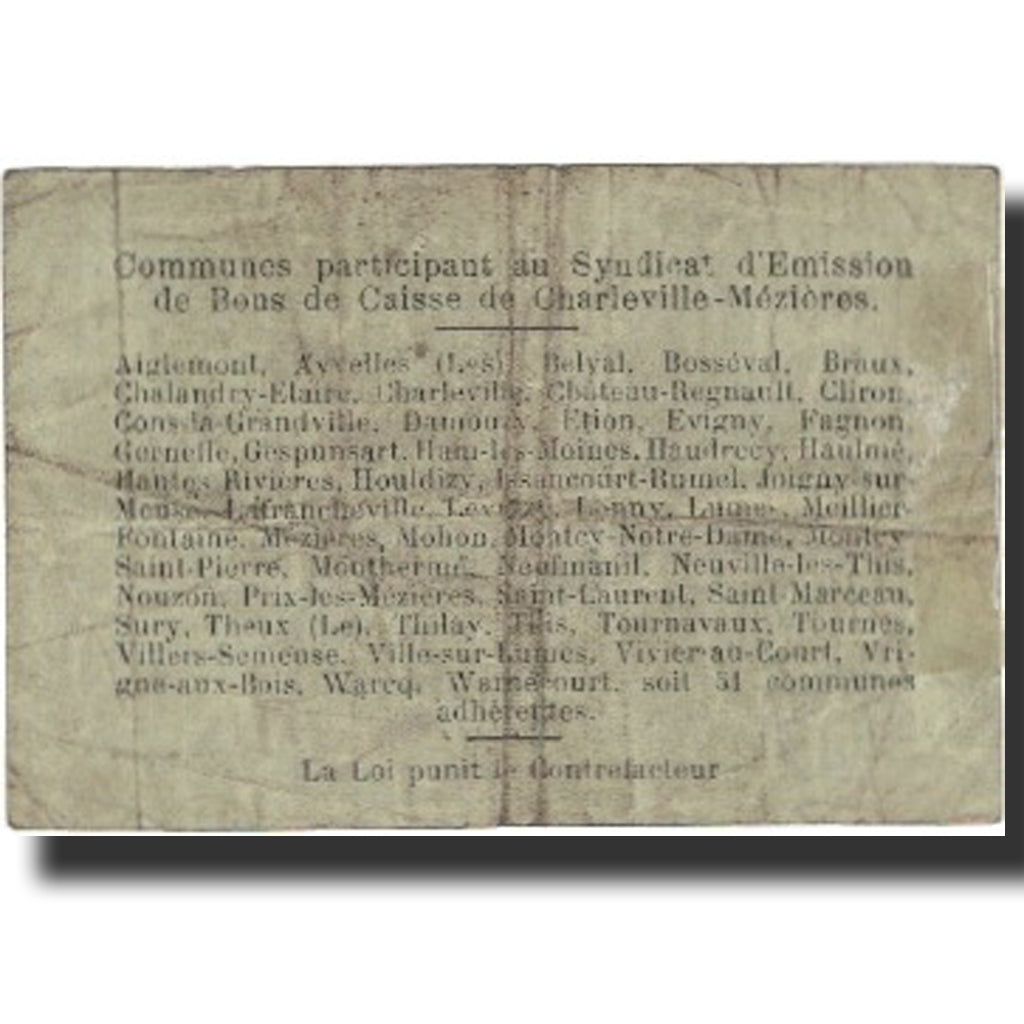 Communes participant au Syndicat d'Emission
de Bons de Caisse de Charleville-Mézières.
Aiglemont, Ayvelles (Les), Belval, Bosséval, Braux,
Chalandry-Elaire, Charleville, Château-Regnault, Cliron,
Cons-la-Grandville, Damouzy, Etion, Evigny, Fagnon,
Gernelle, Gespunsart, Ham-les-Moines, Haudrecy, Haulmé,
Hautes Rivières, Houldizy, Issancourt-Rumel, Joigny-sur-
Meuse, Lafrancheville, Levrezy, Lonny, Lumes, Meillier-
Fontaine, Mézières, Mohon, Montcy-Notre-Dame, Montcy-
Saint-Pierre, Monthermé, Neufmanil, Neuville-les-This,
Nouzon, Prix-les-Mézières, Saint-Laurent, Saint-Marceau,
Sury, Theux (Le), Thilay, This, Tournavaux, Tournes,
Villers-Semeuse, Ville-sur-Lumes, Vivier-au-Court, Vri-
gne-aux-Bois, Warcq, Warnécourt, soit communes
adhérentes.
La Loi punit le Contrefacteur